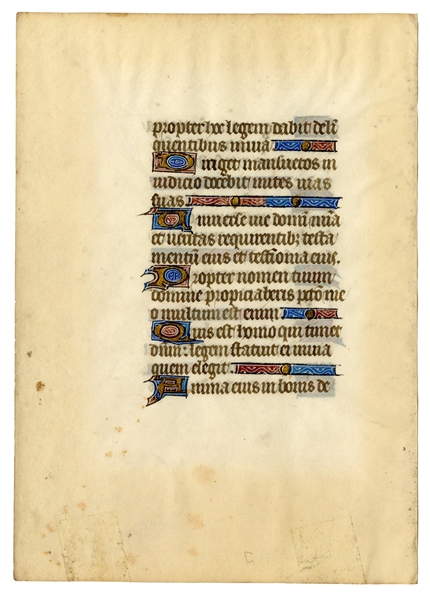 propter hoc legem dabit deli
quentibus in via
Diriget mansuetos in
iudicio docebit mites vias
suas
Universe vie domini mia
et veritas requirentibz testa
mentum eius et testimonia eius.
Propter nomen tuum
domine propiciaberis pcto me
o multum est enim
Quis est homo qui timet
dnm: legem statuit ei in via
quam elegit.
Anima eius in bonis de